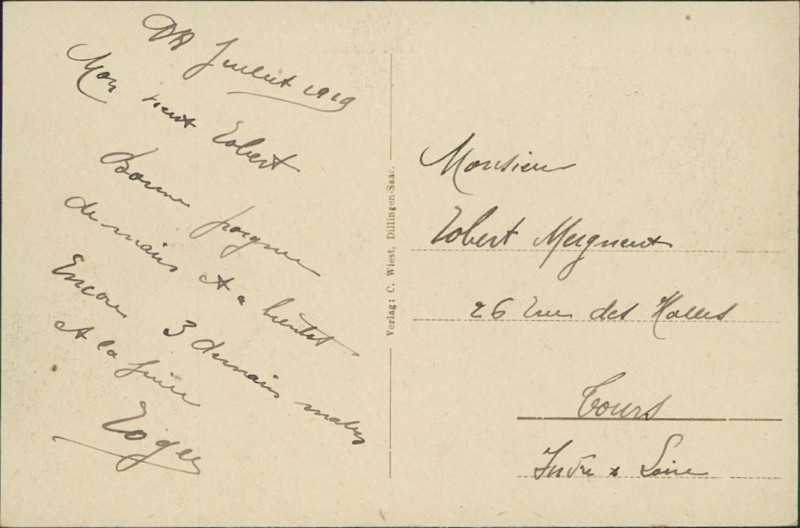 Juillet 1919
Mon vieux Robert
Bonne poignee
de mains et a bientot
Encore 3 demain matin
et la fuite
Roger
Verlag: C. Wiest, Dillingen-Saar.
Monsieur
Robert Meignent
26 rue des Halles
Tours
Indre & Loire